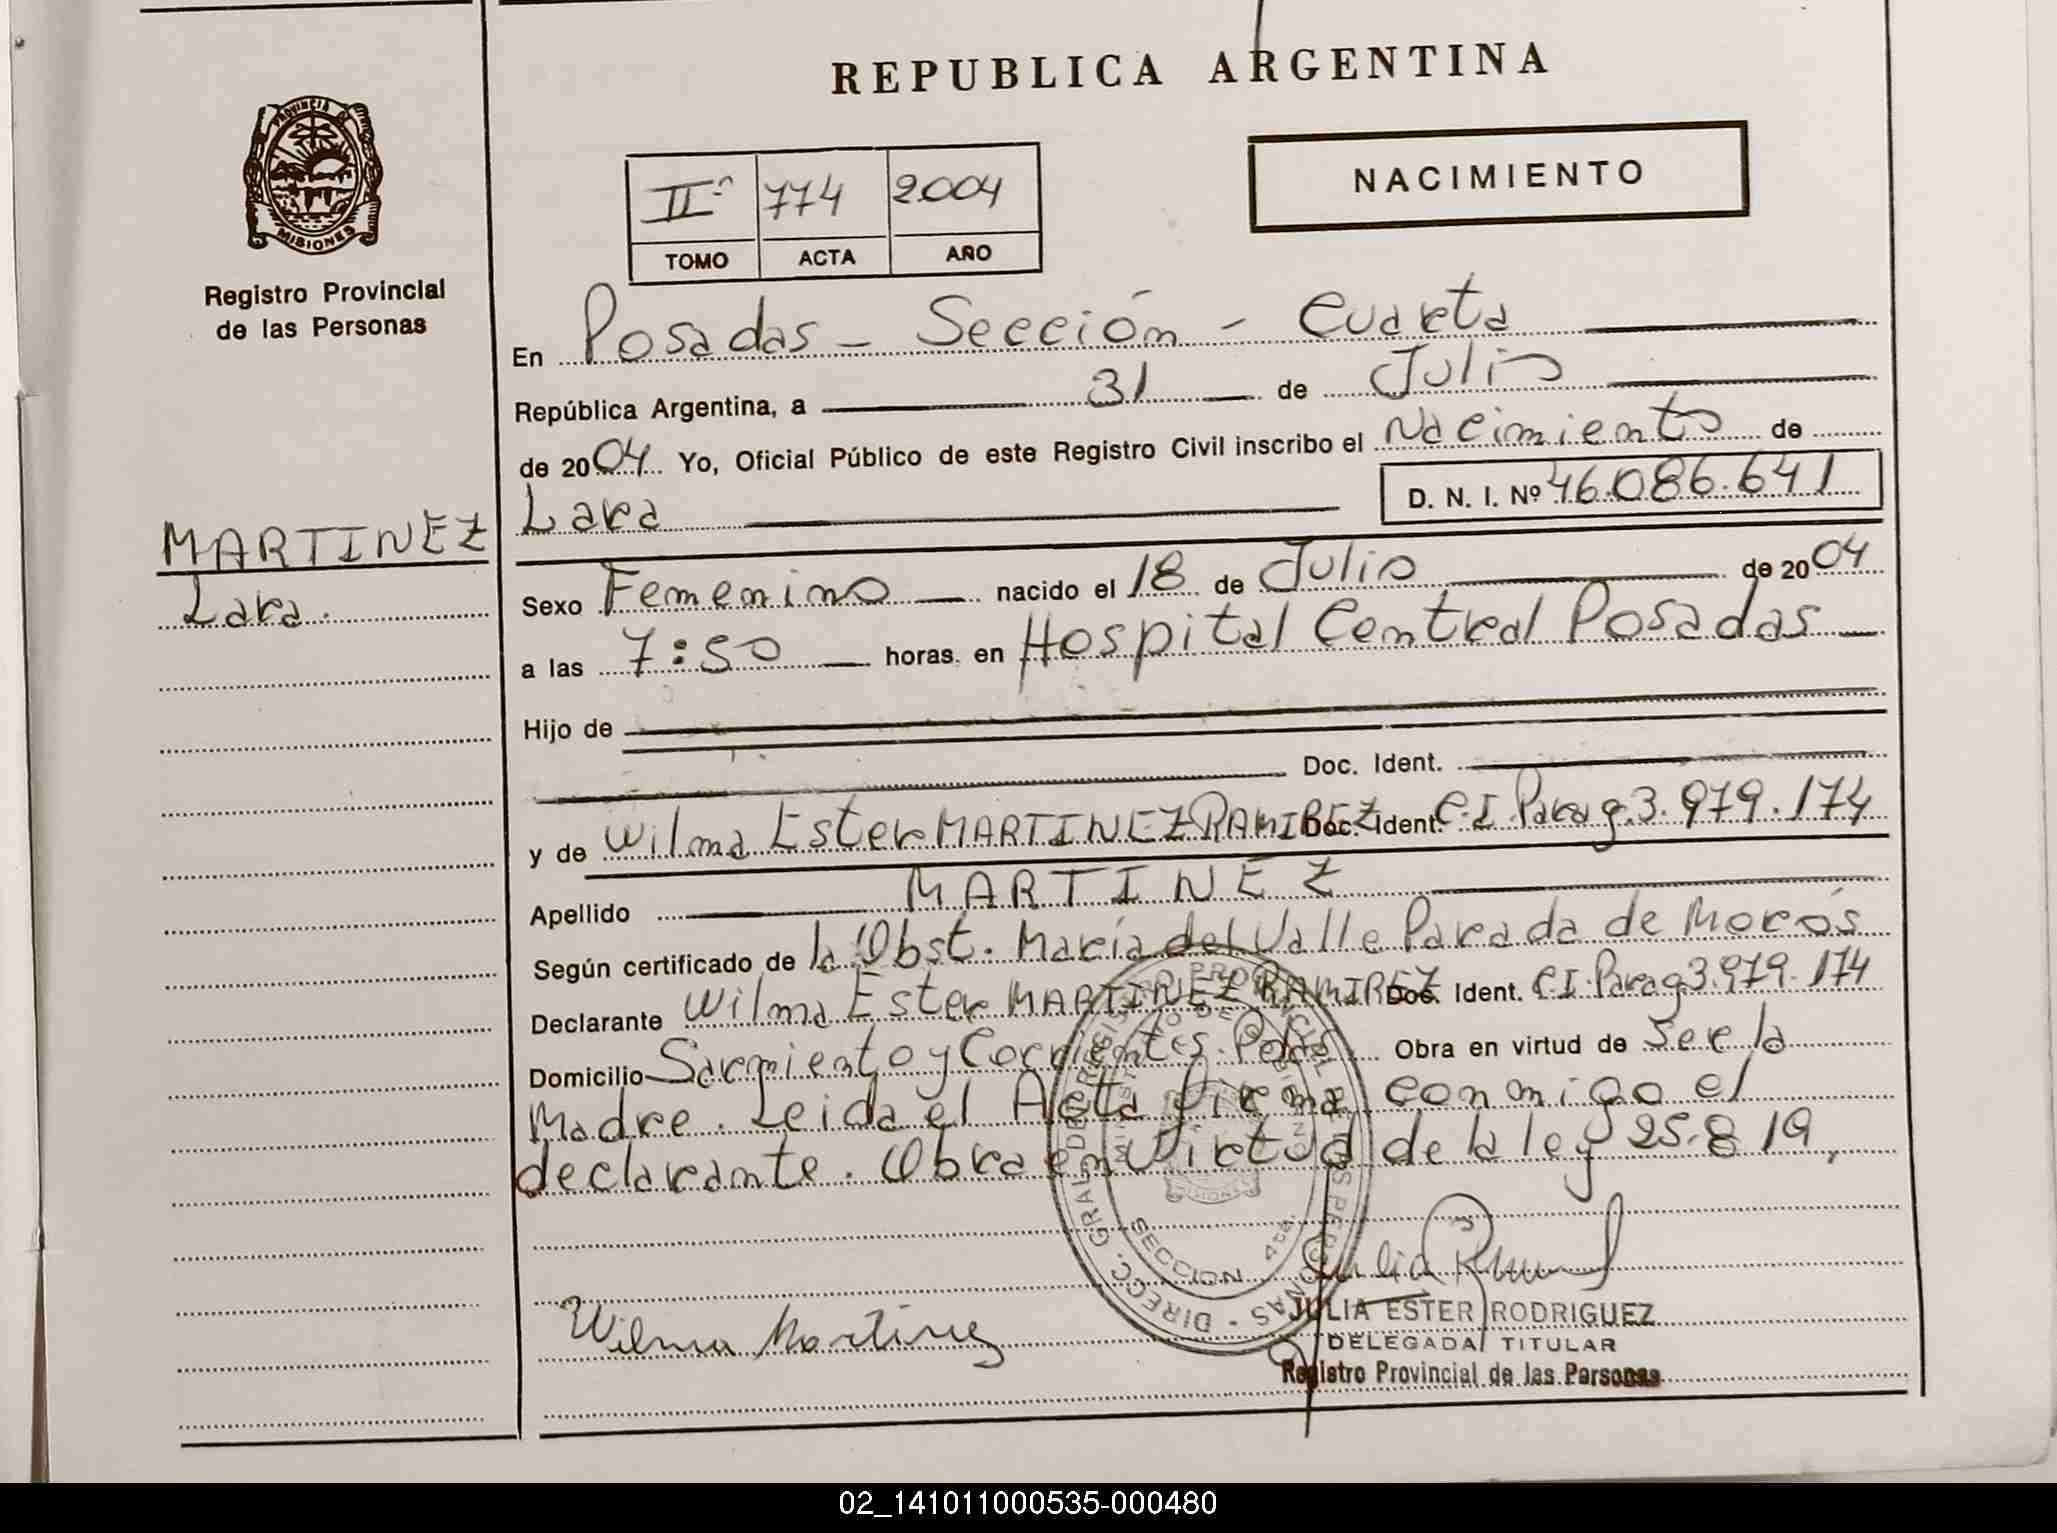 REPUBLICA ARGENTINA
PROVINCIA DE
MISIONES
Registro Provincial
de las Personas
NACIMIENTO
IIº 774 2004
TOMO ACTA AÑO
En Posadas - Sección - Cuarta
República Argentina, a 31 de Julio
de 2004 Yo, Oficial Público de este Registro Civil inscribo el Nacimiento de
Lara D. N. I. Nº 46.086.641
MARTINEZ
Lara.
Sexo Femenino nacido el 18 de Julio de 2004
a las 7:50 horas. en Hospital Central Posadas
Hijo de
Doc. Ident.
y de Wilma Ester MARTINEZ RAMIREZ Doc. Ident. C.I. Parag. 3.979.174
Apellido MARTINEZ
Según certificado de la Obst. María del Valle Parada de Morós
Declarante Wilma Ester MARTINEZ RAMIREZ Doc. Ident. C.I. Parag 3.979.174
Domicilio Sarmiento y Corrientes. Pdas Obra en virtud de Ser la
Madre. Leida el Acta firma conmigo el
declarante. Obra en Virtud de la ley 25.819,
DIRECC. GRAL. DE REGISTRO PROVINCIAL DE LAS PERSONAS
MINISTERIO DE GOBIERNO
SECCION 4ta.
Wilma Martinez
JULIA ESTER RODRIGUEZ
DELEGADA TITULAR
Registro Provincial de las Personas
02_141011000535-000480